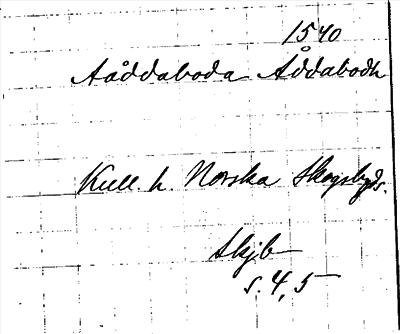 1540
Aåddaboda Åddabodh
Kull. h. Norska Skogsbygds.
Skjb
s. 4, 5